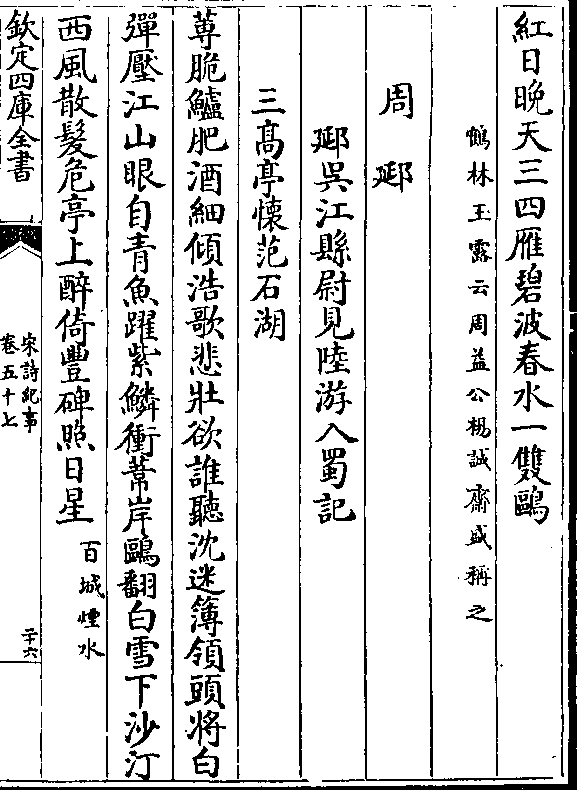 紅日晩天三四雁碧波春水一雙鷗
鶴林玉露云周益公楊誠齋盛稱之
周郔
郔吳江縣尉見陸游入蜀記
三髙亭懷范石湖
蓴脆鱸肥酒細傾浩歌悲壯欲誰聽沈迷簿領頭將白
彈壓江山眼自青魚躍紫鱗衝葦岸鷗翻白雪下沙汀
西風散髮危亭上醉倚豐碑照日星百城煙水
欽定四庫全書
宋詩紀事
卷五十七
二十六